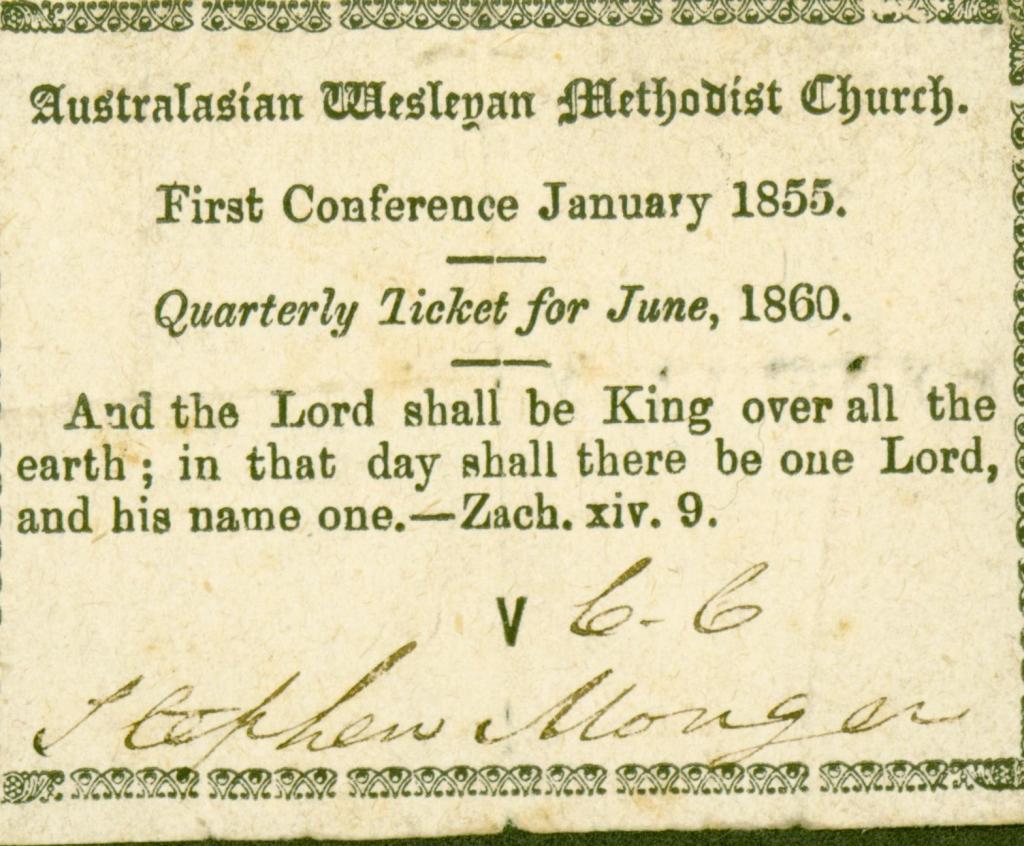 Australasian Wesleyan Methodist Church.
First Conference January 1855.
Quarterly Ticket for June, 1860.
And the Lord shall be King over all the
earth; in that day shall there be one Lord,
and his name one.—Zach. xiv. 9.
V 6-6
Stephen Monger